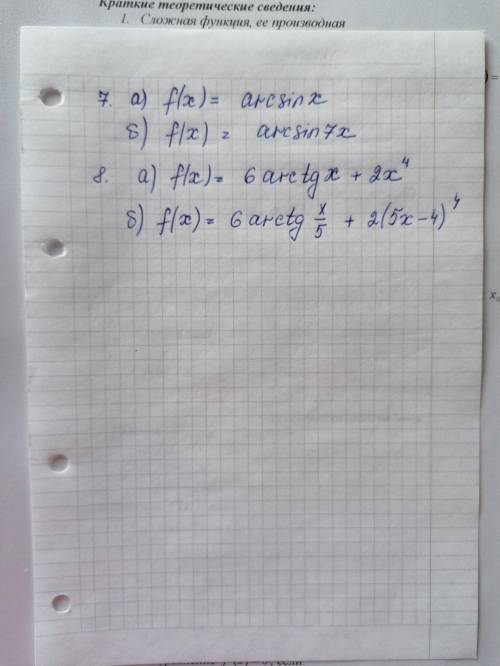 Краткие теоретические сведения:
1. Сложная функция, ее производная
7. а) f(x) = arcsin x
б) f(x) = arcsin 7x
8. а) f(x) = 6 arctg x + 2x⁴
б) f(x) = 6 arctg x/5 + 2(5x-4)⁴